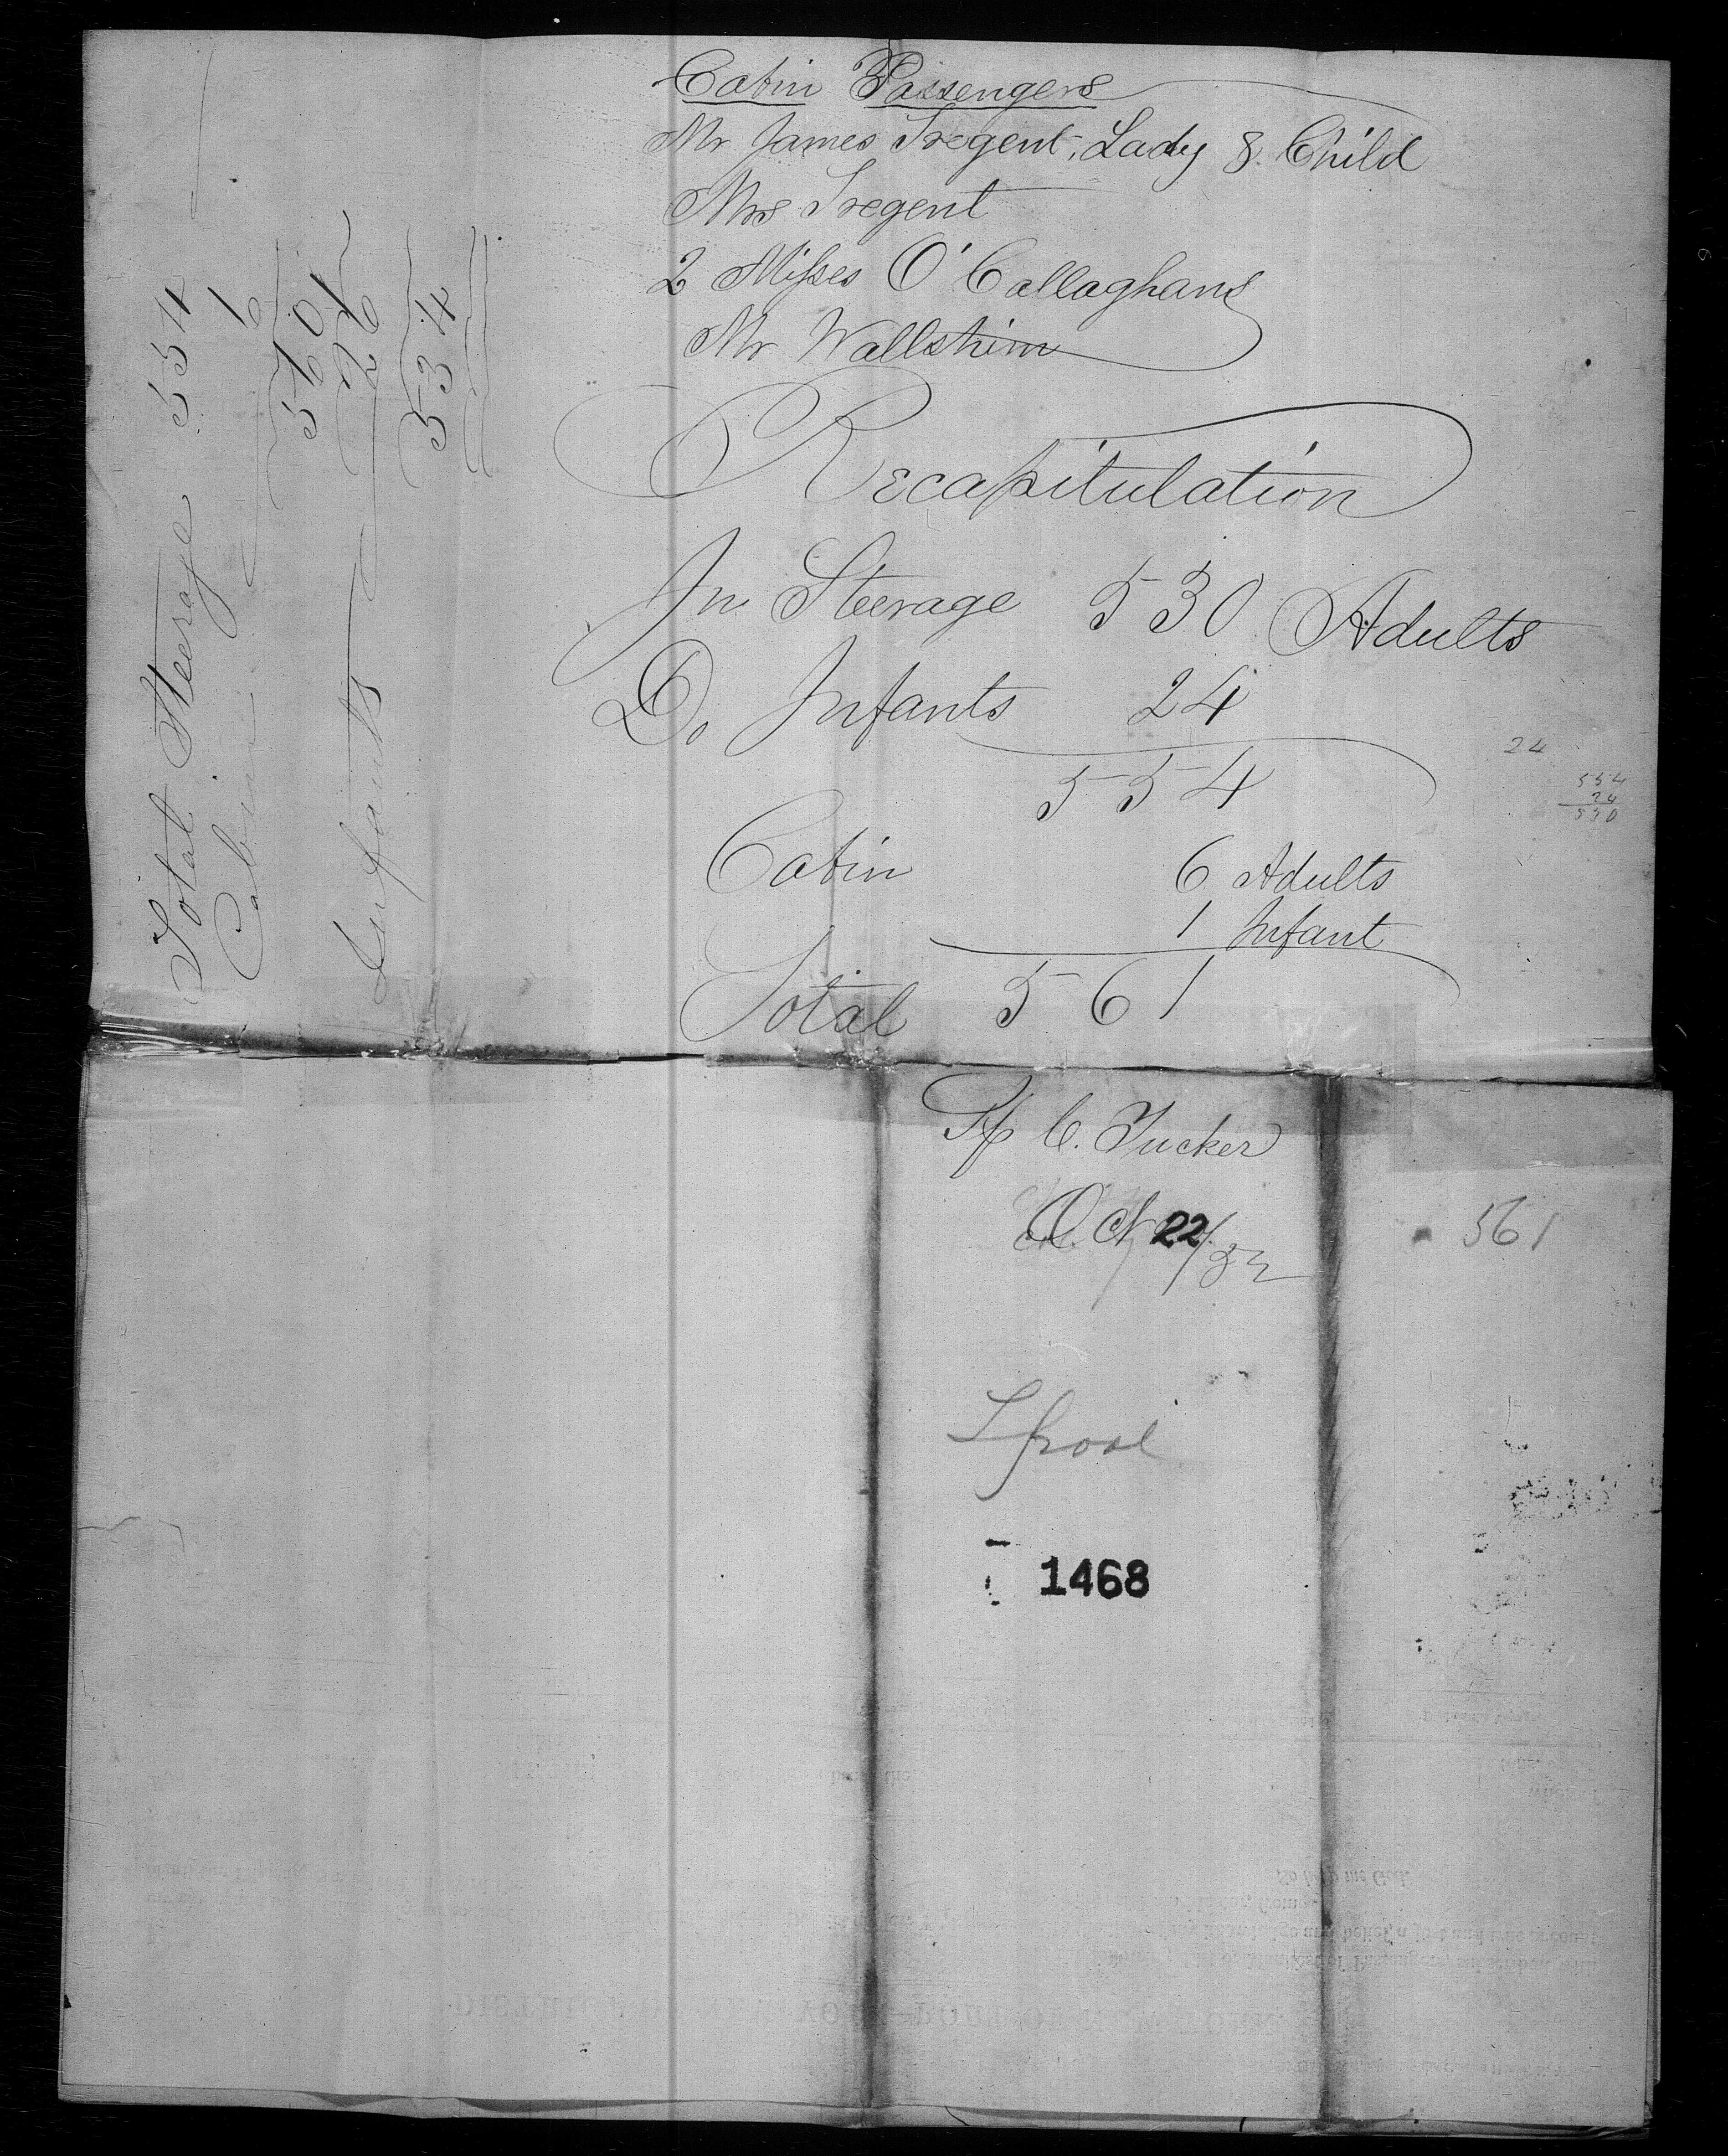 Cabin Passengers
Mr James Tregent, Lady & Child
Mrs Tregent
2 Misses O'Callaghans
Mr Wallstein
Recapitulation
In Steerage 530 Adults
Do Infants 24
554
Cabin 6 Adults
1 Infant
Total 561
24
554
24
530
Total Steerage 554
Cabin 6
560
Infants 26
534
C. Tucker
Oct 22/
561
Lpool
1468
So help me God.